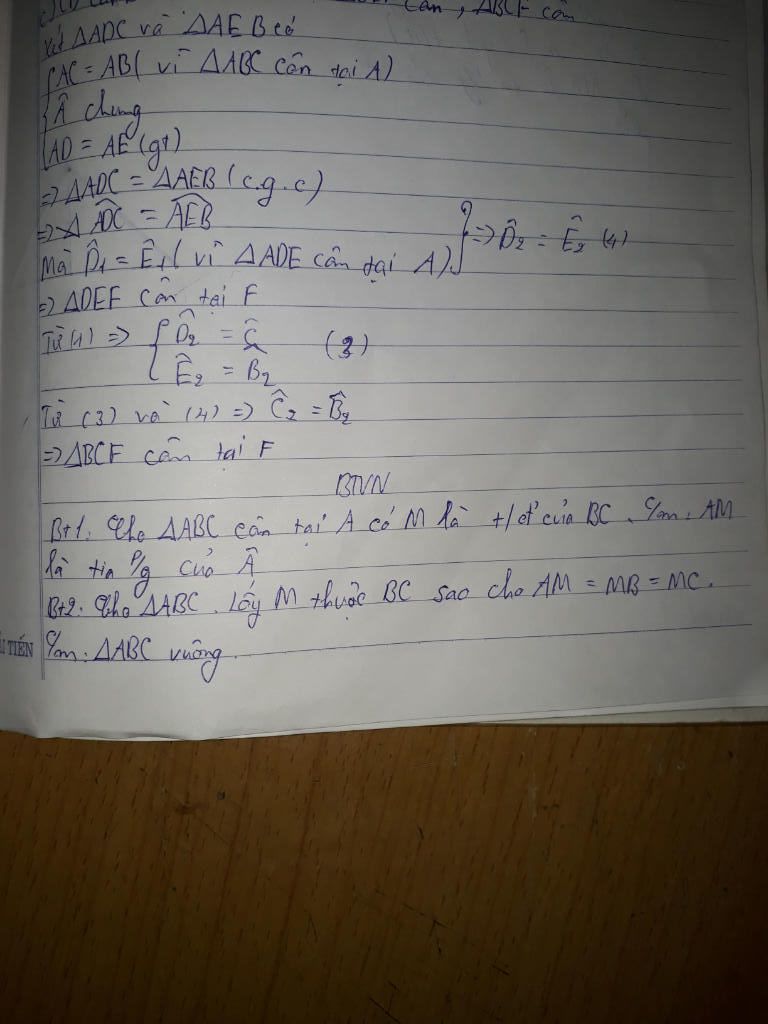 cân, ΔBCF cân
Xét ΔADC và ΔAEB có
{AC = AB( vì ΔABC cân tại A)
Â chung
AD = AE (gt)
=> ΔADC = ΔAEB (c.g.c)
=> ADC = AEB
Mà D̂1 = Ê1 ( vì ΔADE cân tại A) } => D̂2 = Ê2 (4)
=> ΔDEF cân tại F
Từ (1) => { D̂2 = Ĉ (3)
Ê2 = B̂2
Từ (3) và (4) => Ĉ2 = B̂2
=> ΔBCF cân tại F
BTVN
Bt1: Cho ΔABC cân tại A có M là t/đ của BC. C/m: AM
là tia p/g của Â
Bt2: Cho ΔABC. Lấy M thuộc BC sao cho AM = MB = MC.
TIẾN C/m: ΔABC vuông.